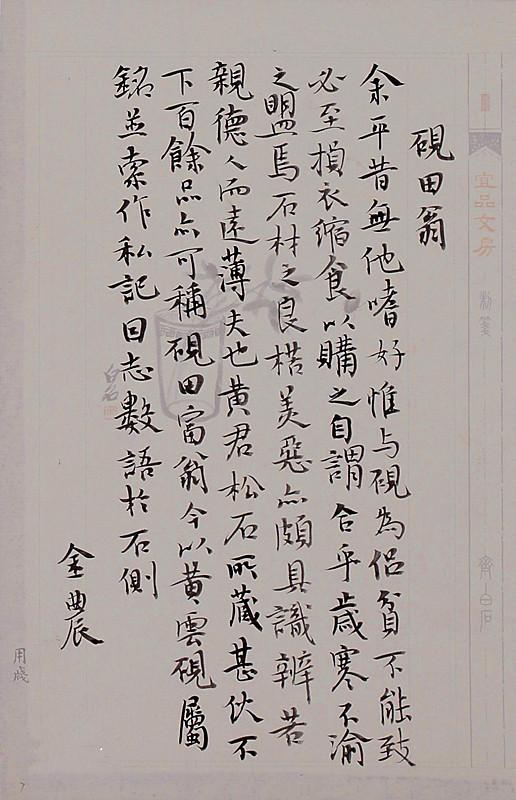 硯田翁
余平昔無他嗜好惟与硯為侶貧不能致
必至損衣縮食以購之自謂合乎歲寒不渝
之盟焉石材之良楛美惡亦頗具識辨若
親德人而遠薄夫也黃君松石所藏甚伙不
下百餘品亦可稱硯田富翁今以黃雲硯屬
銘並索作私記因志數語於石側
金典辰
宜品文房
齊白石
白石
用箋